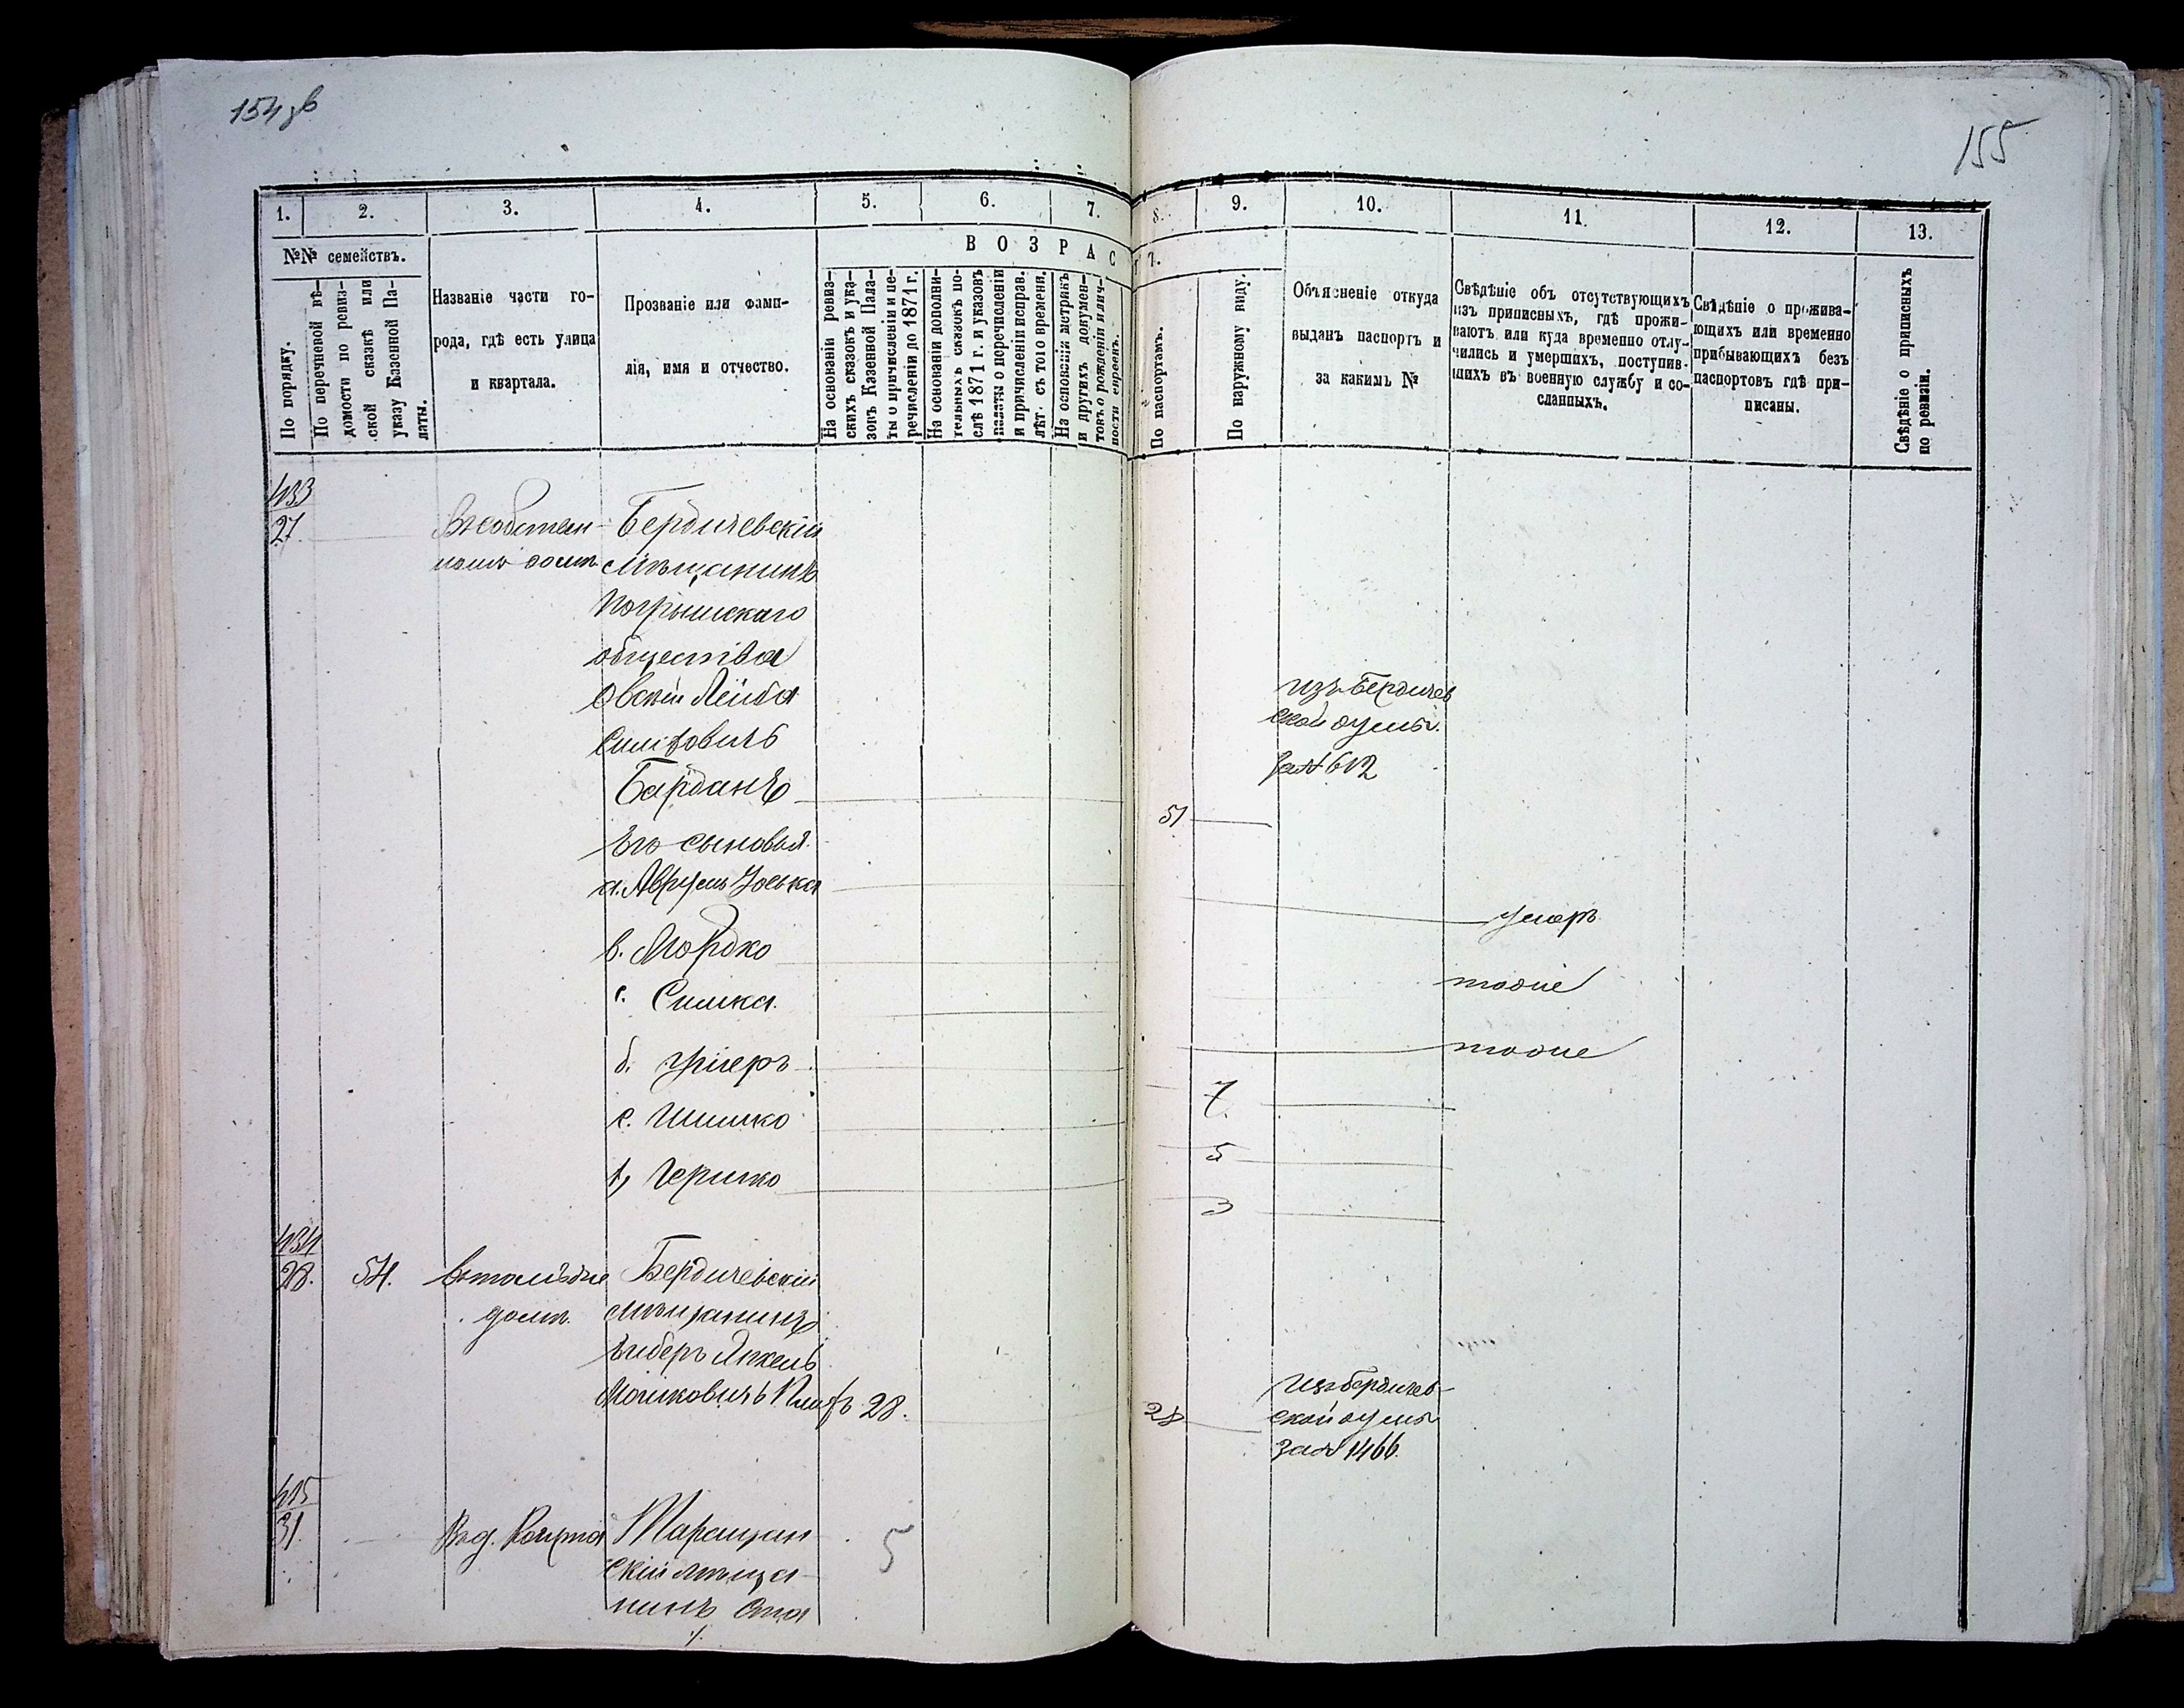 154
155
1.
2.
3.
4.
5.
6.
7.
8.
9.
10.
11.
12.
13.
№№ семействъ.
ВОЗРАСТЪ.
По порядку.
По перечневой вѣ-
домости по ревиз-
ской сказкѣ или
указу Казенной Па-
латы.
Названіе части го-
рода, гдѣ есть улица
и квартала.
Прозваніе или фами-
лія, имя и отчество.
На основаніи ревиз-
скихъ сказокъ и ука-
зовъ Казенной Пала-
ты о причисленіи и пе-
речисленіи до 1871 г.
На основаніи дополни-
тельныхъ сказокъ по-
слѣ 1871 г. и указовъ
палаты о перечисленіи
и причисленіи исправ.
лѣт. съ того времени.
На основаніи метрикъ
и другихъ докумен-
товъ о рожденіи и лич-
ности евреевъ.
По паспортамъ.
По наружному виду.
Объясненіе откуда
выданъ паспортъ и
за какимъ №
Свѣдѣніе объ отсутствующихъ
изъ приписныхъ, гдѣ прожи-
ваютъ или куда временно отлу-
чились и умершихъ, поступив-
шихъ въ военную службу и со-
сланныхъ.
Свѣдѣніе о прожива-
ющихъ или временно
прибывающихъ безъ
паспортовъ гдѣ при-
писаны.
Свѣдѣніе о приписныхъ
по ревизіи.
433
27.
Въ собствен-
номъ домѣ
Бердичевскій
мѣщанинъ
общества
Овсѣй Лейба
Барданъ
изъ Бердичев
ской думы.
за № 612
51
Его сыновья.
а. Аврумъ Іоська
умеръ
в. Мордко
тоже
с. Симка.
тоже
7.
е. Шимко
5
f, Гершко
3
434
28.
54.
домѣ.
Бердичевскій
мѣщанинъ
Янкель
Мошковичъ
28.
28
Изъ бердичев-
ской думы
за № 1466.
415
31.
Таращан
скій мѣща-
нинъ
5